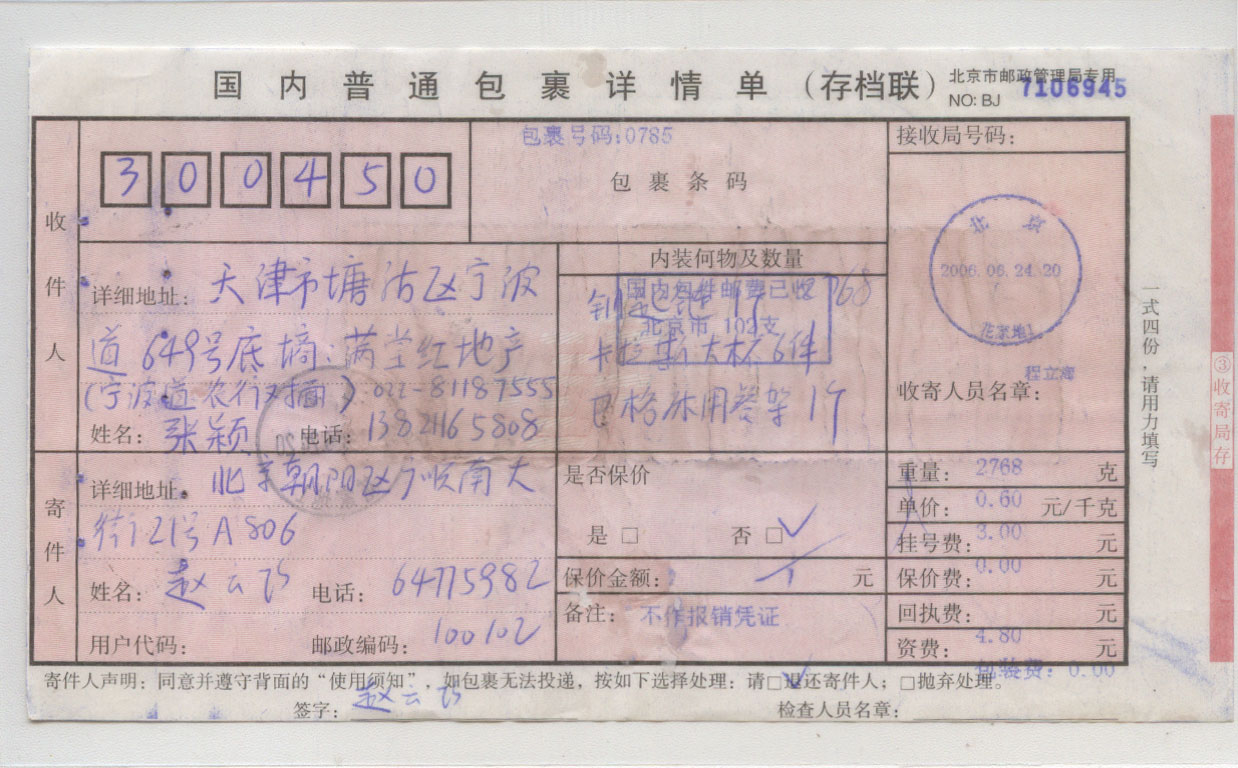 国内普通包裹详情单(存档联)
北京市邮政管理局专用
NO: BJ 7106945
收件人
300450
包裹号码:0785
包裹条码
接收局号码:
详细地址: 天津市塘沽区宁波
道649号底墒、满堂红地产
(宁波道农行对面) 022-81187555
姓名: 张颖 电话: 13821165808
内装何物及数量
国内包件邮费已收
北京市 102支
卡拉斯大杯6件
巴格休用餐架1个
北京
2006.06.24.20
花家地1
程立海
收寄人员名章:
寄件人
详细地址: 北京朝阳区广顺南大
街21号A806
姓名: 赵云 电话: 64775982
用户代码: 邮政编码: 100102
是否保价
是□ 否□✓
保价金额: 元
备注: 不作报销凭证
重量: 2768 克
单价: 0.60 元/千克
挂号费: 3.00 元
保价费: 0.00 元
回执费: 元
资费: 4.80 元
包装费: 0.00
寄件人声明:同意并遵守背面的“使用须知”,如包裹无法投递,按如下选择处理:请□退还寄件人;□抛弃处理。
签字: 赵云
检查人员名章:
一式四份,请用力填写
③收寄局存